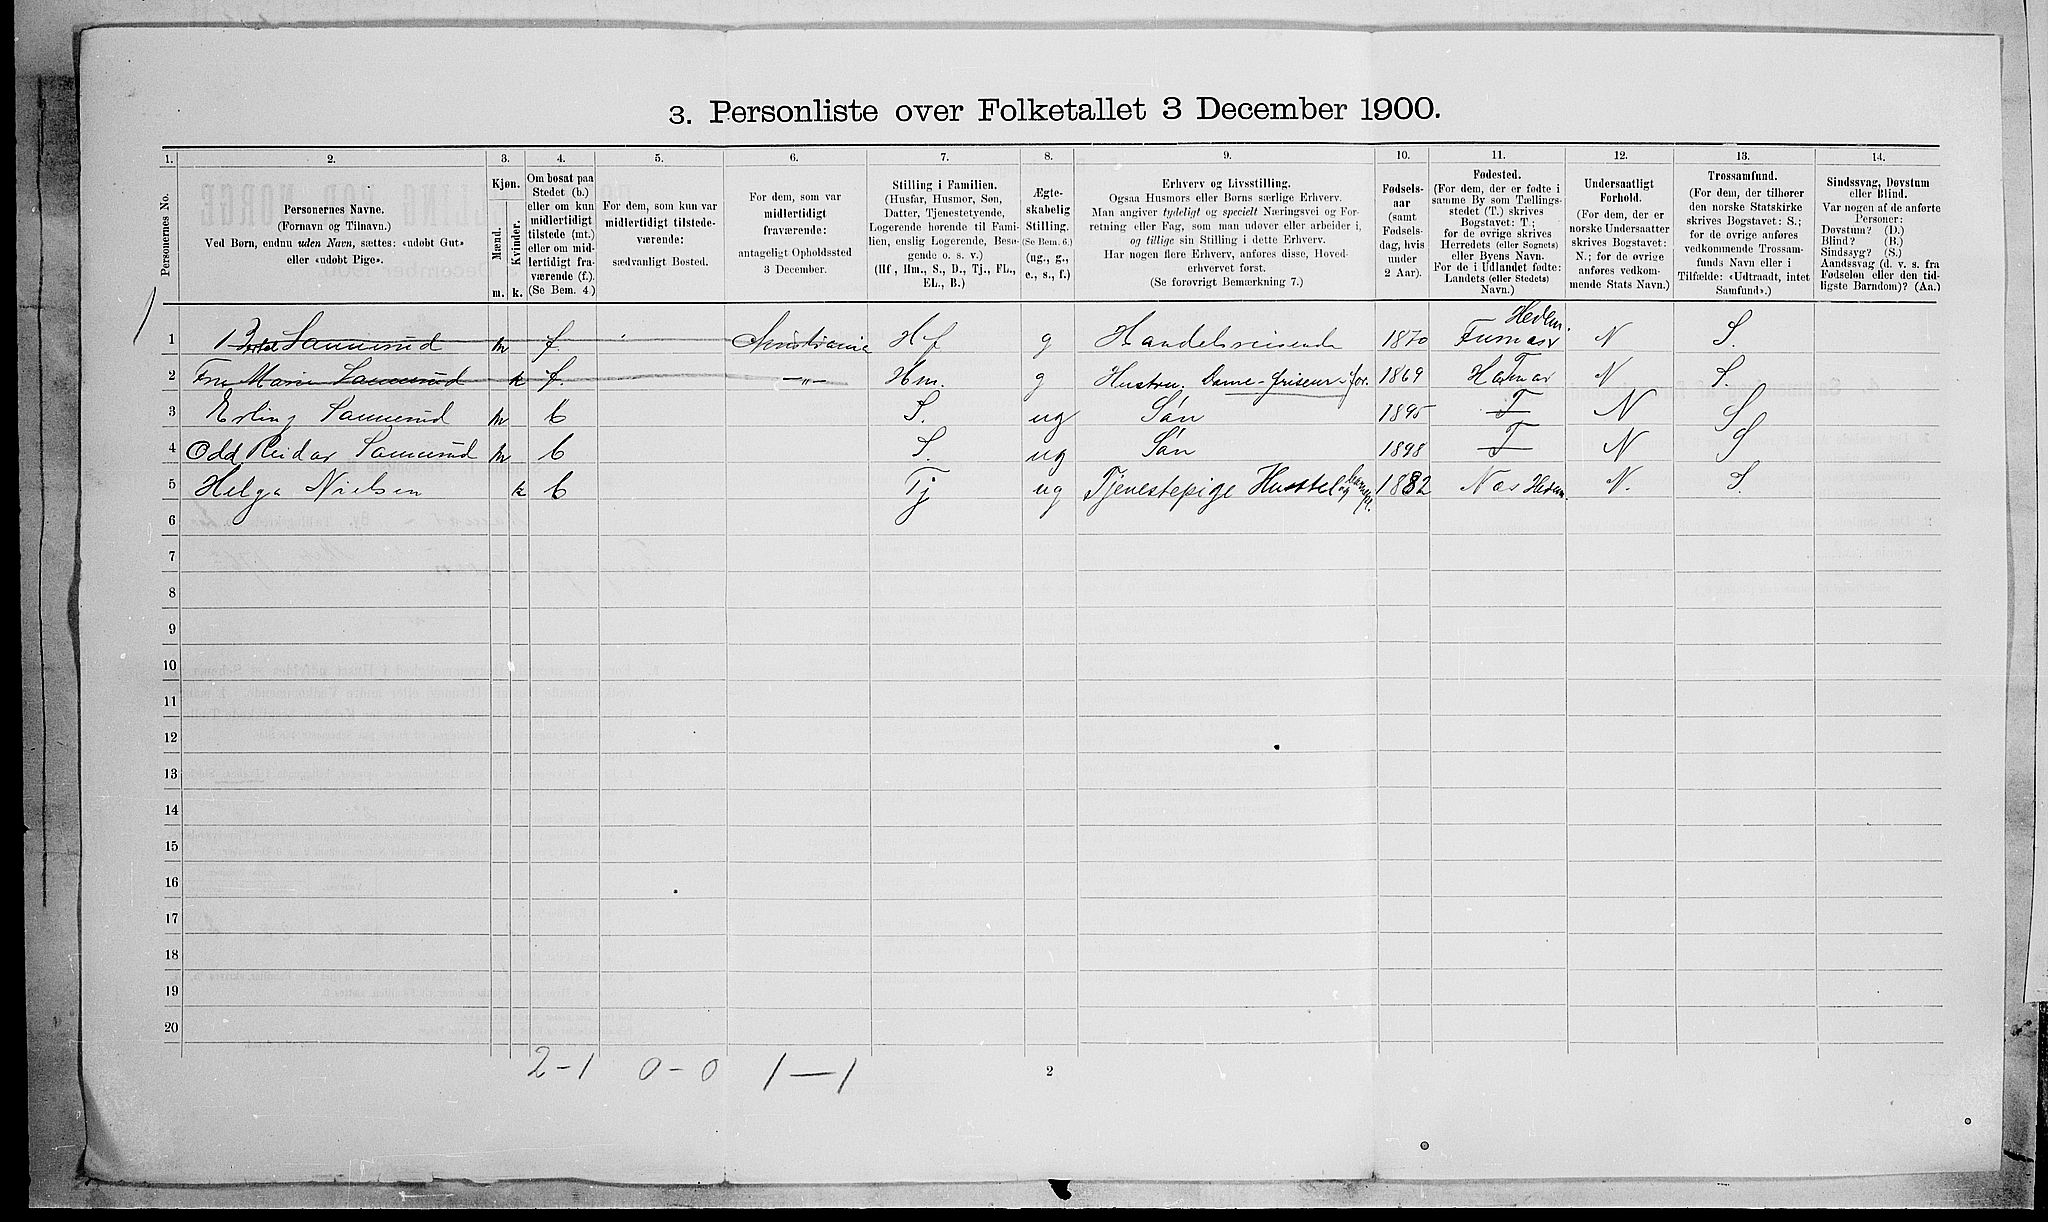 3. Personliste over Folketallet 3 December 1900.
1. 2. 3. 4. 5. 6. 7. 8. 9. 10. 11. 12. 13. 14.
Personernes No.
Personernes Navne.
(Fornavn og Tilnavn.)
Ved Børn, endnu uden Navn, sættes: «udøbt Gut»
eller «udøbt Pige».
Kjøn.
Mænd.
Kvinder.
m. k.
Om bosat paa
Stedet (b.)
eller om kun
midlertidigt
tilstede (mt.)
eller om mid-
lertidigt fra-
værende (f.).
(Se Bem. 4.)
For dem, som kun var
midlertidigt tilstede-
værende:
sædvanligt Bosted.
For dem, som var
midlertidigt
fraværende:
antageligt Opholdssted
3 December.
Stilling i Familien.
(Husfar, Husmor, Søn,
Datter, Tjenestetyende,
Logerende hørende til Fami-
lien, enslig Logerende, Besø-
gende o. s. v.)
(Hf, Hm., S., D., Tj., FL.,
EL., B.)
Ægte-
skabelig
Stilling.
(Se Bem. 6.)
(ug., g.,
e., s., f.)
Erhverv og Livsstilling.
Ogsaa Husmors eller Børns særlige Erhverv.
Man angiver tydeligt og specielt Næringsvei og For-
retning eller Fag, som man udøver eller arbeider i,
og tillige sin Stilling i dette Erhverv.
Har nogen flere Erhverv, anføres disse, Hoved-
erhvervet først.
(Se forøvrigt Bemærkning 7.)
Fødsels-
aar
(samt
Fødsels-
dag, hvis
under
2 Aar).
Fødested.
(For dem, der er fødte i
samme By som Tællings-
stedet (T.) skrives
Bogstavet: T;
for de øvrige skrives
Herredets (eller Sognets)
eller Byens Navn.
For de i Udlandet fødte:
Landets (eller Stedets)
Navn.)
Undersaatligt
Forhold.
(For dem, der er
norske Undersaatter
skrives Bogstavet:
N.; for de øvrige
anføres vedkom-
mende Stats Navn.)
Trossamfund.
(For dem, der tilhører
den norske Statskirke
skrives Bogstavet: S.;
for de øvrige anføres
vedkommende Trossam-
funds Navn eller i
Tilfælde: «Udtraadt, intet
Samfund».)
Sindssvag, Døvstum
eller Blind.
Var nogen af de anførte
Personer:
Døvstum? (D.)
Blind? (B.)
Sindssyg? (S.)
Aandssvag (d. v. s. fra
Fødselen eller den tid-
ligste Barndom)? (Aa.)
1 Sannerud m f. Christiania Hf g Handelsreisende 1870 Furnes Hedm. N S.
2 Fru Marie Sannerud k f. —„— Hm. g Hustru. Dame-friseur-for. 1869 Hamar T N S.
3 Erling Sannerud m b S. ug Søn 1895 T N S
4 Odd Reidar Sannerud m b S. ug Søn 1898 T N S
5 Helga Nielsen k b Tj ug Tjenestepige Husstel og 1882 Nes Hedm. N. S.
6
7
8
9
10
11
12
13
14
15
16
17
18
19
20
2-1 0-0 1-1
2